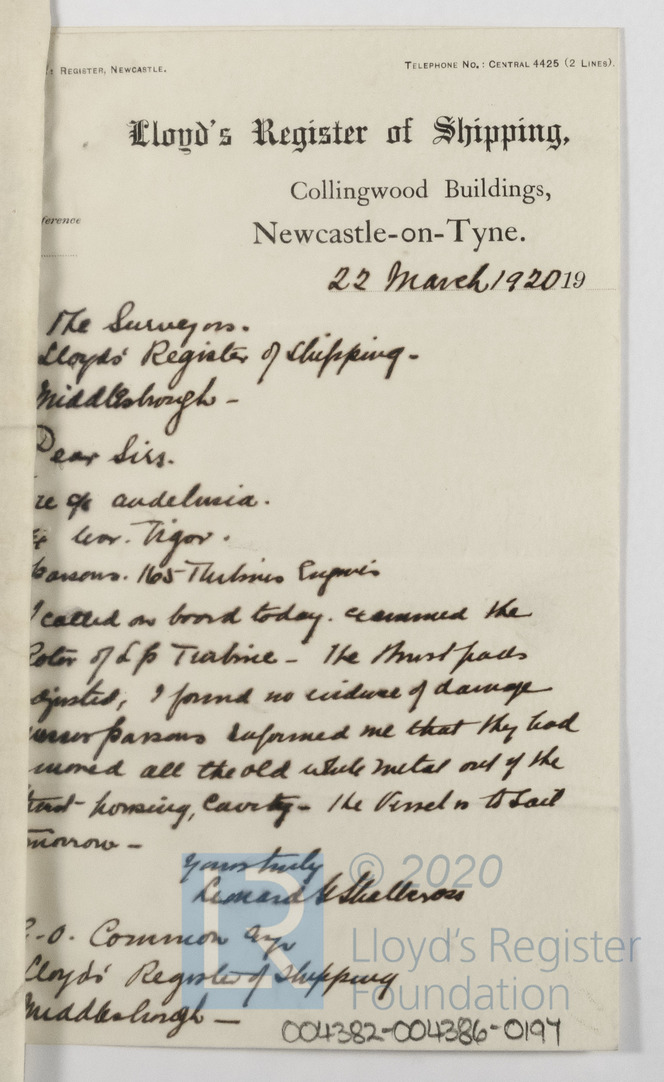 : Register, Newcastle.
Telephone No.: Central 4425 (2 Lines).
Lloyd's Register of Shipping,
Collingwood Buildings,
ference
Newcastle-on-Tyne.
22 March 1920 19
The Surveyors.
Lloyds' Register of Shipping -
Middlesbrough -
Dear Sirs.
re andelusia.
Tigor.
Parsons. Turbines Engines
I called on board today. examined the
Rotor of L P Turbine - The thrust pads
adjusted, I found no evidence of damage
Parsons informed me that they had
moved all the old white metal out of the
housing, Cavity - the Vessel is to Sail
morrow -
Yours truly
Leonard Shallcross
.O. Common Esqr
Lloyds' Register of Shipping
Middlesbrough -
© 2020
LR
Lloyd's Register
Foundation
004382-004386-0197